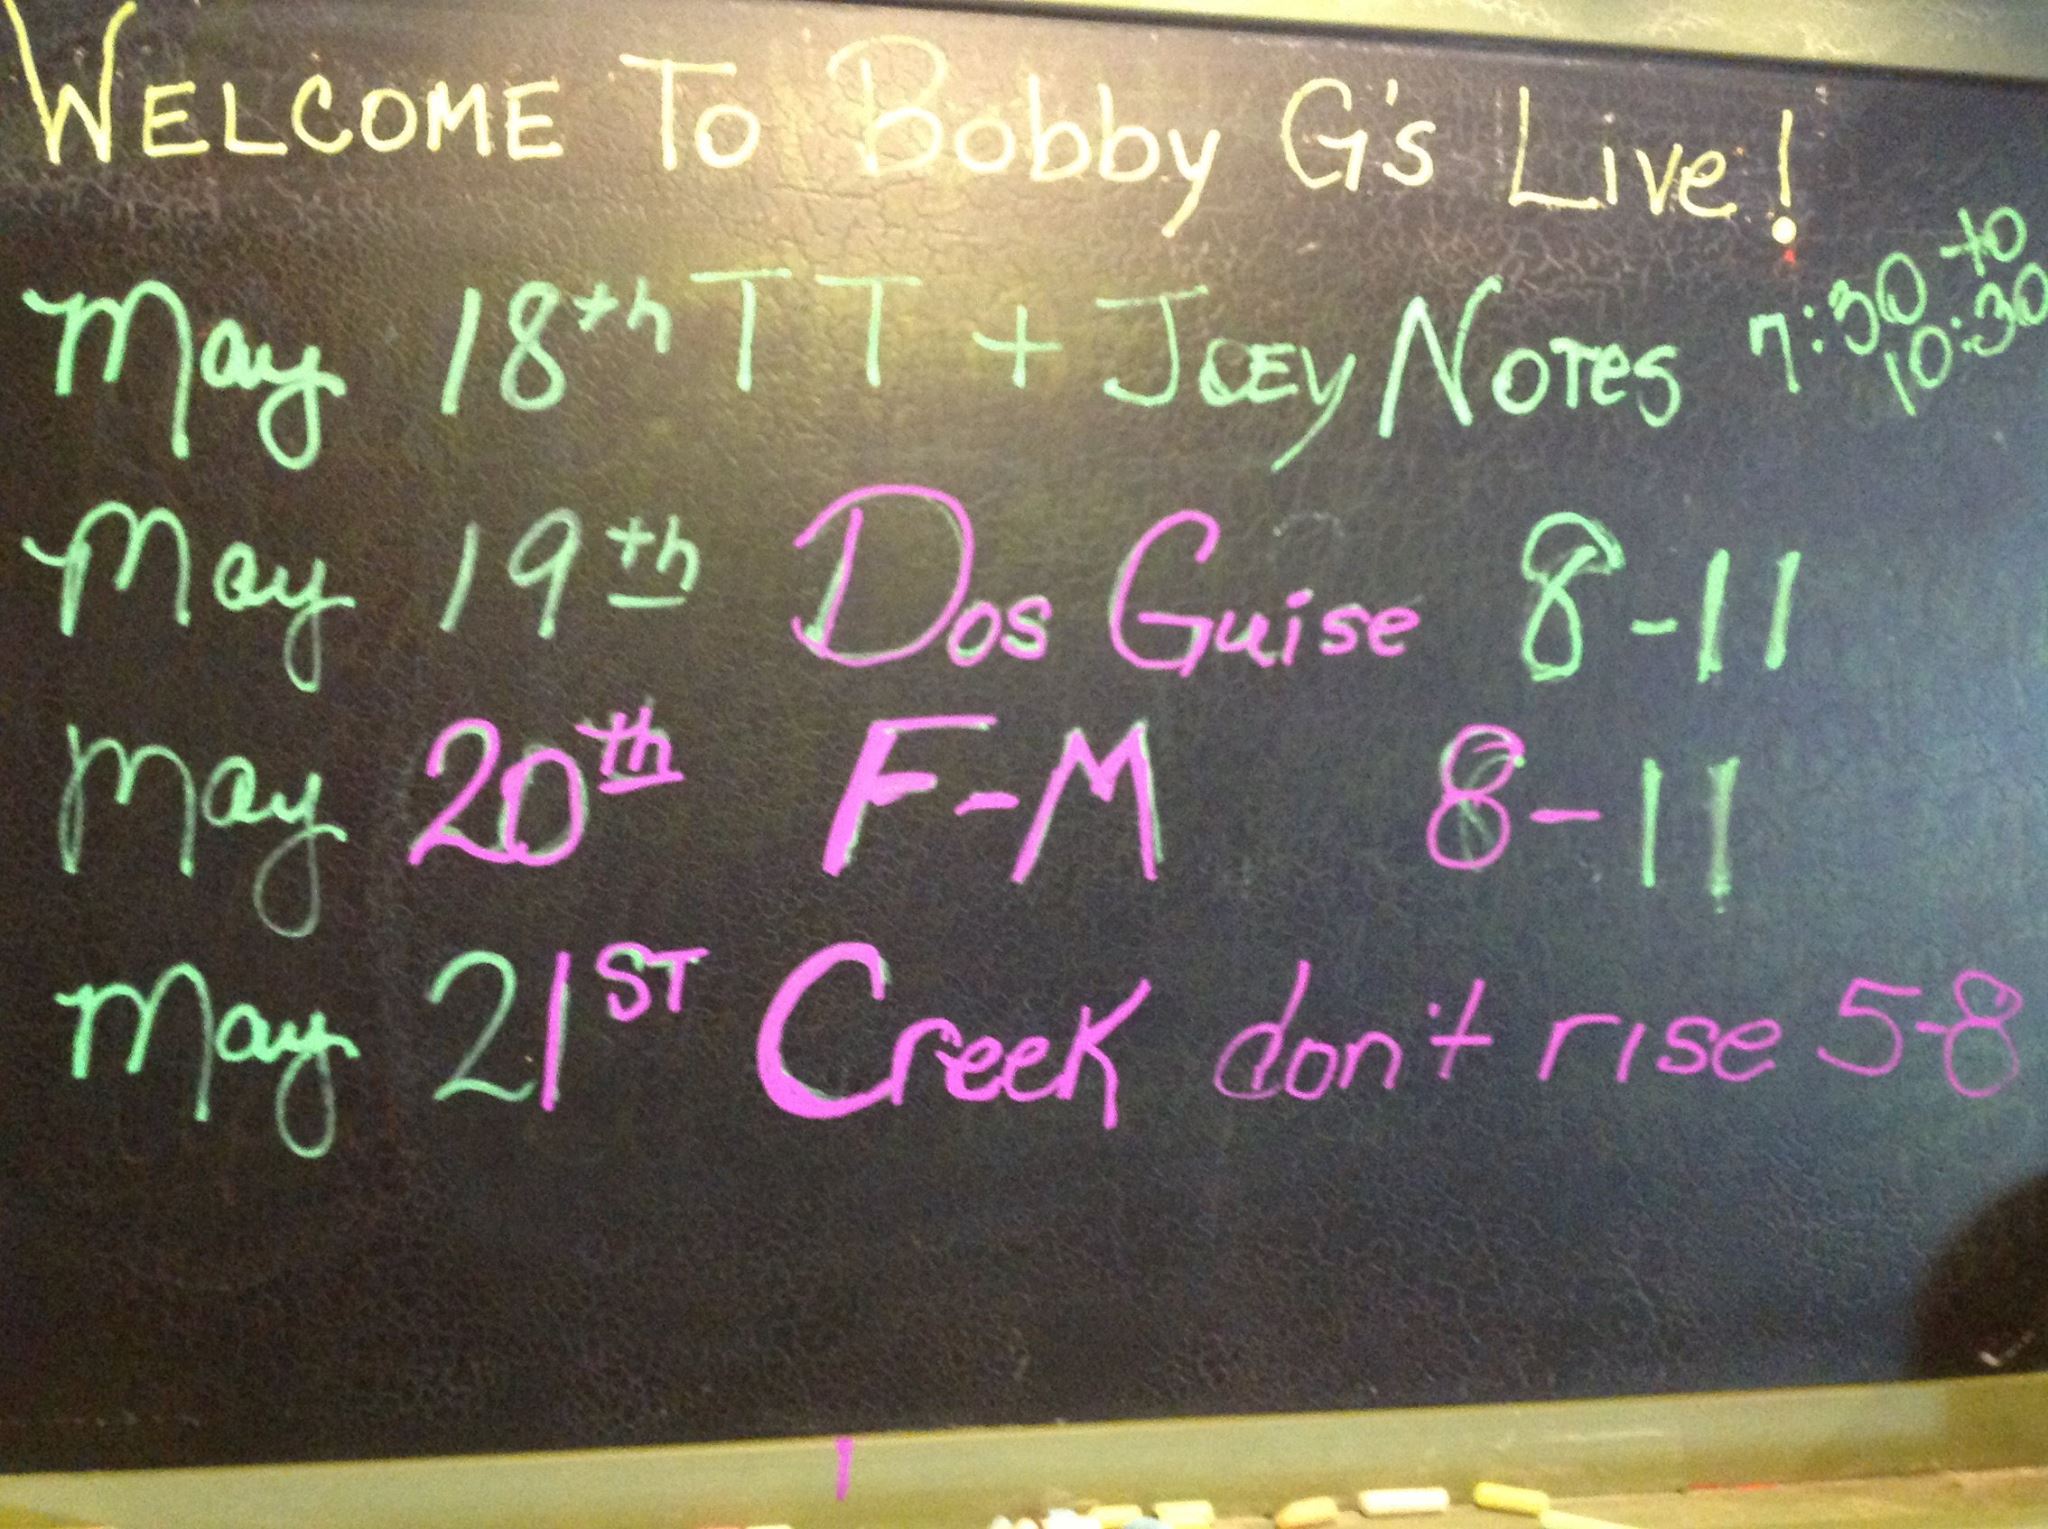 WELCOME To Bobby G's Live!
May 18th TT + JOEY NOTES 7:30 to 10:30
May 19th Dos Guise 8-11
May 20th F-M 8-11
May 21ST Creek don't rise 5-8